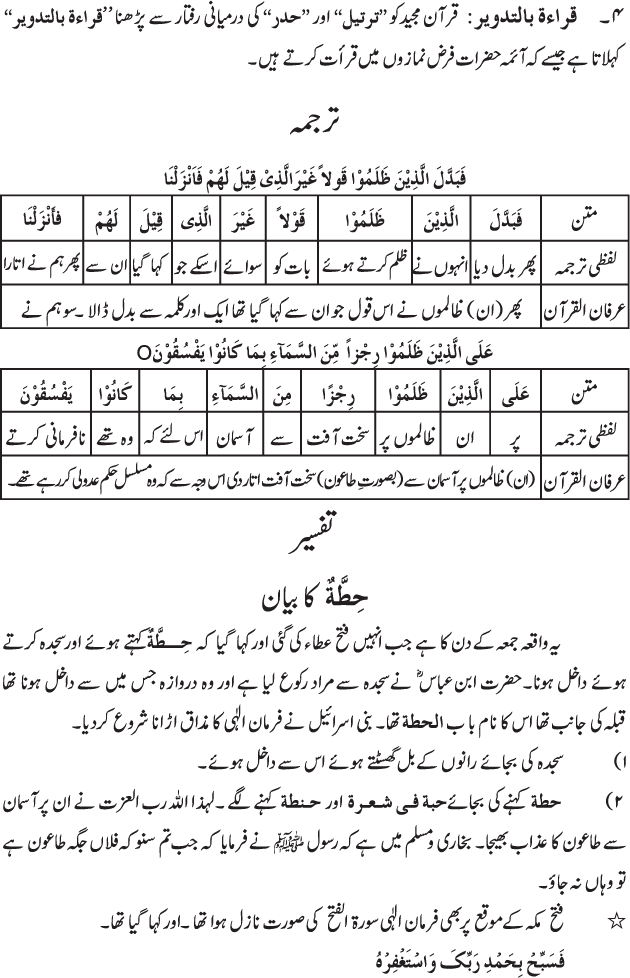 ۴۔ قراءة بالتدویر: قرآن مجید کو ”ترتیل“ اور ”حدر“ کی درمیانی رفتار سے پڑھنا ”قراءة بالتدویر“
کہلاتا ہے جیسے کہ آئمہ حضرات فرض نمازوں میں قرأت کرتے ہیں۔
ترجمہ
فَبَدَّلَ الَّذِیْنَ ظَلَمُوْا قَوْلاً غَیْرَ الَّذِیْ قِیْلَ لَهُمْ فَاَنْزَلْنَا
متن فَبَدَّلَ الَّذِیْنَ ظَلَمُوْا قَوْلاً غَیْرَ الَّذِی قِیْلَ لَهُمْ فَأَنْزَلْنَا
لفظی ترجمہ پھر بدل دیا انہوں نے ظلم کرتے ہوئے بات کو سوائے اسکے جو کہا گیا ان سے پھر ہم نے اتارا
عرفان القرآن پھر (ان) ظالموں نے اس قول جو ان سے کہا گیا تھا ایک اور کلمہ سے بدل ڈالا ۔ سو ہم نے
عَلَی الَّذِیْنَ ظَلَمُوْا رِجْزاً مِّنَ السَّمَآءِ بِمَا کَانُوْا یَفْسُقُوْنَO
متن عَلَی الَّذِیْنَ ظَلَمُوْا رِجْزًا مِنَ السَّمَآءِ بِمَا کَانُوْا یَفْسُقُوْنَ
لفظی ترجمہ پر ان ظالموں پر سخت آفت سے آسمان اس لئے کہ وہ تھے نافرمانی کرتے
عرفان القرآن (ان) ظالموں پر آسمان سے (بصورتِ طاعون) سخت آفت اتار دی اس وجہ سے کہ وہ مسلسل حکم عدولی کر رہے تھے۔
تفسیر
حِطَّةٌ کا بیان
یہ واقعہ جمعہ کے دن کا ہے جب انہیں فتح عطاء کی گئی اور کہا گیا کہ حِطَّةٌ کہتے ہوئے اور سجدہ کرتے
ہوئے داخل ہونا۔ حضرت ابن عباسؓ نے سجدہ سے مراد رکوع لیا ہے اور وہ دروازہ جس میں سے داخل ہونا تھا
قبلہ کی جانب تھا اس کا نام باب الحطة تھا۔ بنی اسرائیل نے فرمان الٰہی کا مذاق اڑانا شروع کردیا۔
۱) سجدہ کی بجائے رانوں کے بل گھسٹتے ہوئے اس سے داخل ہوئے۔
۲) حطة کہنے کی بجائے حبة فی شعرة اور حنطة کہنے لگے۔ لہذا اللہ رب العزت نے ان پر آسمان
سے طاعون کا عذاب بھیجا۔ بخاری و مسلم میں ہے کہ رسول ﷺ نے فرمایا کہ جب تم سنو کہ فلاں جگہ طاعون ہے
تو وہاں نہ جاؤ۔
☆ فتح مکہ کے موقع پر بھی فرمان الٰہی سورۃ الفتح کی صورت نازل ہوا تھا۔ اور کہا گیا تھا۔
فَسَبِّحْ بِحَمْدِ رَبِّکَ وَاسْتَغْفِرْهُ